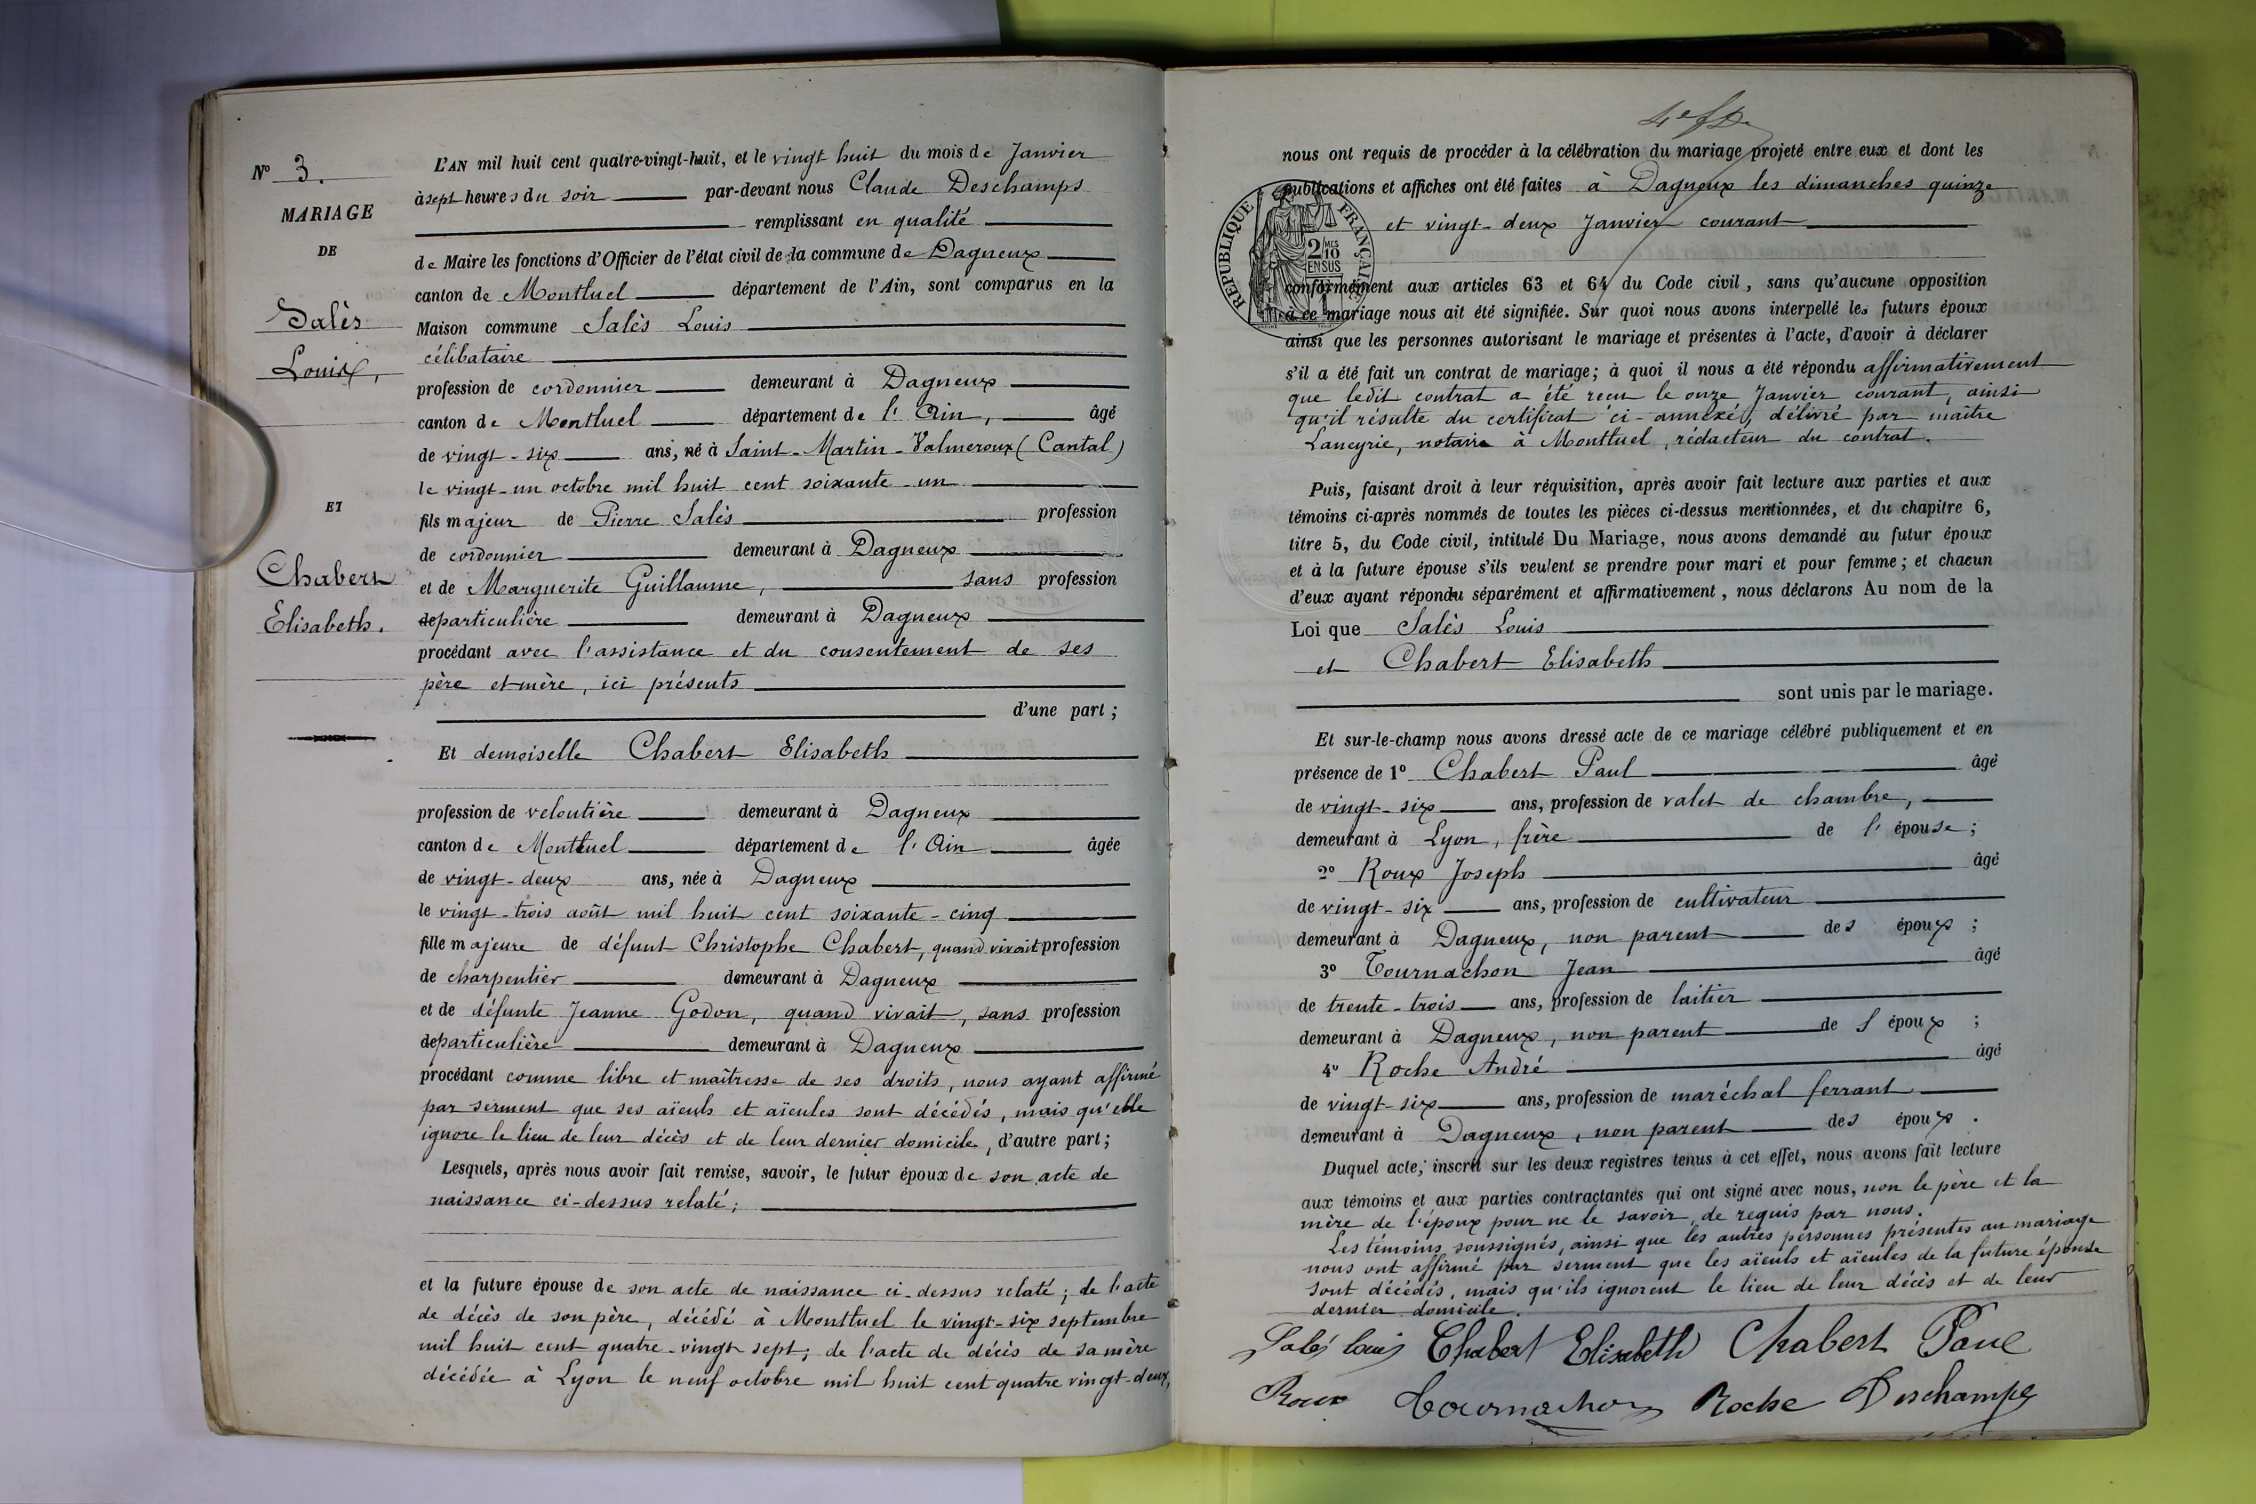 N° 3.
MARIAGE
DE
Salès
Louis,
ET
Chabert
Elisabeth.
L'AN mil huit cent quatre-vingt-huit, et le vingt huit du mois de Janvier
à sept heures du soir par-devant nous Claude Deschamps
remplissant en qualité
de Maire les fonctions d'Officier de l'état civil de la commune de Dagneux
canton de Montluel département de l'Ain, sont comparus en la
Maison commune Salès Louis
célibataire
profession de cordonnier demeurant à Dagneux
canton de Montluel département de l'Ain, âgé
de vingt-six ans, né à Saint-Martin-Valmeroux (Cantal)
le vingt-un octobre mil huit cent soixante-un
fils majeur de Pierre Salès profession
de cordonnier demeurant à Dagneux
et de Marguerite Guillaume, sans profession
de particulière demeurant à Dagneux
procédant avec l'assistance et du consentement de ses
père et mère, ici présents
d'une part ;
Et demoiselle Chabert Elisabeth
profession de veloutière demeurant à Dagneux
canton de Montluel département de l'Ain âgée
de vingt-deux ans, née à Dagneux
le vingt-trois août mil huit cent soixante-cinq
fille majeure de défunt Christophe Chabert, quand vivait profession
de charpentier demeurant à Dagneux
et de défunte Jeanne Godon, quand vivait, sans profession
de particulière demeurant à Dagneux
procédant comme libre et maîtresse de ses droits, nous ayant affirmé
par serment que ses aïeuls et aïeules sont décédés, mais qu'elle
ignore le lieu de leur décès et de leur dernier domicile, d'autre part ;
Lesquels, après nous avoir fait remise, savoir, le futur époux de son acte de
naissance ci-dessus relaté ;
et la future épouse de son acte de naissance ci-dessus relaté ; de l'acte
de décès de son père, décédé à Montluel le vingt-six septembre
mil huit cent quatre-vingt sept ; de l'acte de décès de sa mère
décédée à Lyon le neuf octobre mil huit cent quatre vingt-deux,
nous ont requis de procéder à la célébration du mariage projeté entre eux et dont les
publications et affiches ont été faites à Dagneux les dimanches quinze
et vingt-deux Janvier courant
RÉPUBLIQUE FRANÇAISE
2 MES 10
EN SUS
conformément aux articles 63 et 64 du Code civil, sans qu'aucune opposition
à ce mariage nous ait été signifiée. Sur quoi nous avons interpellé les futurs époux
ainsi que les personnes autorisant le mariage et présentes à l'acte, d'avoir à déclarer
s'il a été fait un contrat de mariage ; à quoi il nous a été répondu affirmativement
que ledit contrat a été reçu le onze Janvier courant, ainsi
qu'il résulte du certificat ci-annexé, délivré par maître
Lancyrie, notaire à Montluel, rédacteur du contrat.
Puis, faisant droit à leur réquisition, après avoir fait lecture aux parties et aux
témoins ci-après nommés de toutes les pièces ci-dessus mentionnées, et du chapitre 6,
titre 5, du Code civil, intitulé Du Mariage, nous avons demandé au futur époux
et à la future épouse s'ils veulent se prendre pour mari et pour femme ; et chacun
d'eux ayant répondu séparément et affirmativement, nous déclarons Au nom de la
Loi que Salès Louis
et Chabert Elisabeth
sont unis par le mariage.
Et sur-le-champ nous avons dressé acte de ce mariage célébré publiquement et en
présence de 1° Chabert Paul âgé
de vingt-six ans, profession de valet de chambre,
demeurant à Lyon, frère de l'épouse ;
2° Roux Joseph âgé
de vingt-six ans, profession de cultivateur
demeurant à Dagneux, non parent des époux ;
3° Tournachon Jean âgé
de trente-trois ans, profession de laitier
demeurant à Dagneux, non parent des époux ;
4° Roche André âgé
de vingt-six ans, profession de maréchal ferrant
demeurant à Dagneux, non parent des époux.
Duquel acte, inscrit sur les deux registres tenus à cet effet, nous avons fait lecture
aux témoins et aux parties contractantes qui ont signé avec nous, non le père et la
mère de l'époux pour ne le savoir, de requis par nous.
Les témoins soussignés, ainsi que les autres personnes présentes au mariage
nous ont affirmé par serment que les aïeuls et aïeules de la future épouse
sont décédés, mais qu'ils ignorent le lieu de leur décès et de leur
dernier domicile.
Salès Louis Chabert Elisabeth Chabert Paul
Roux Tournachon Roche Deschamps